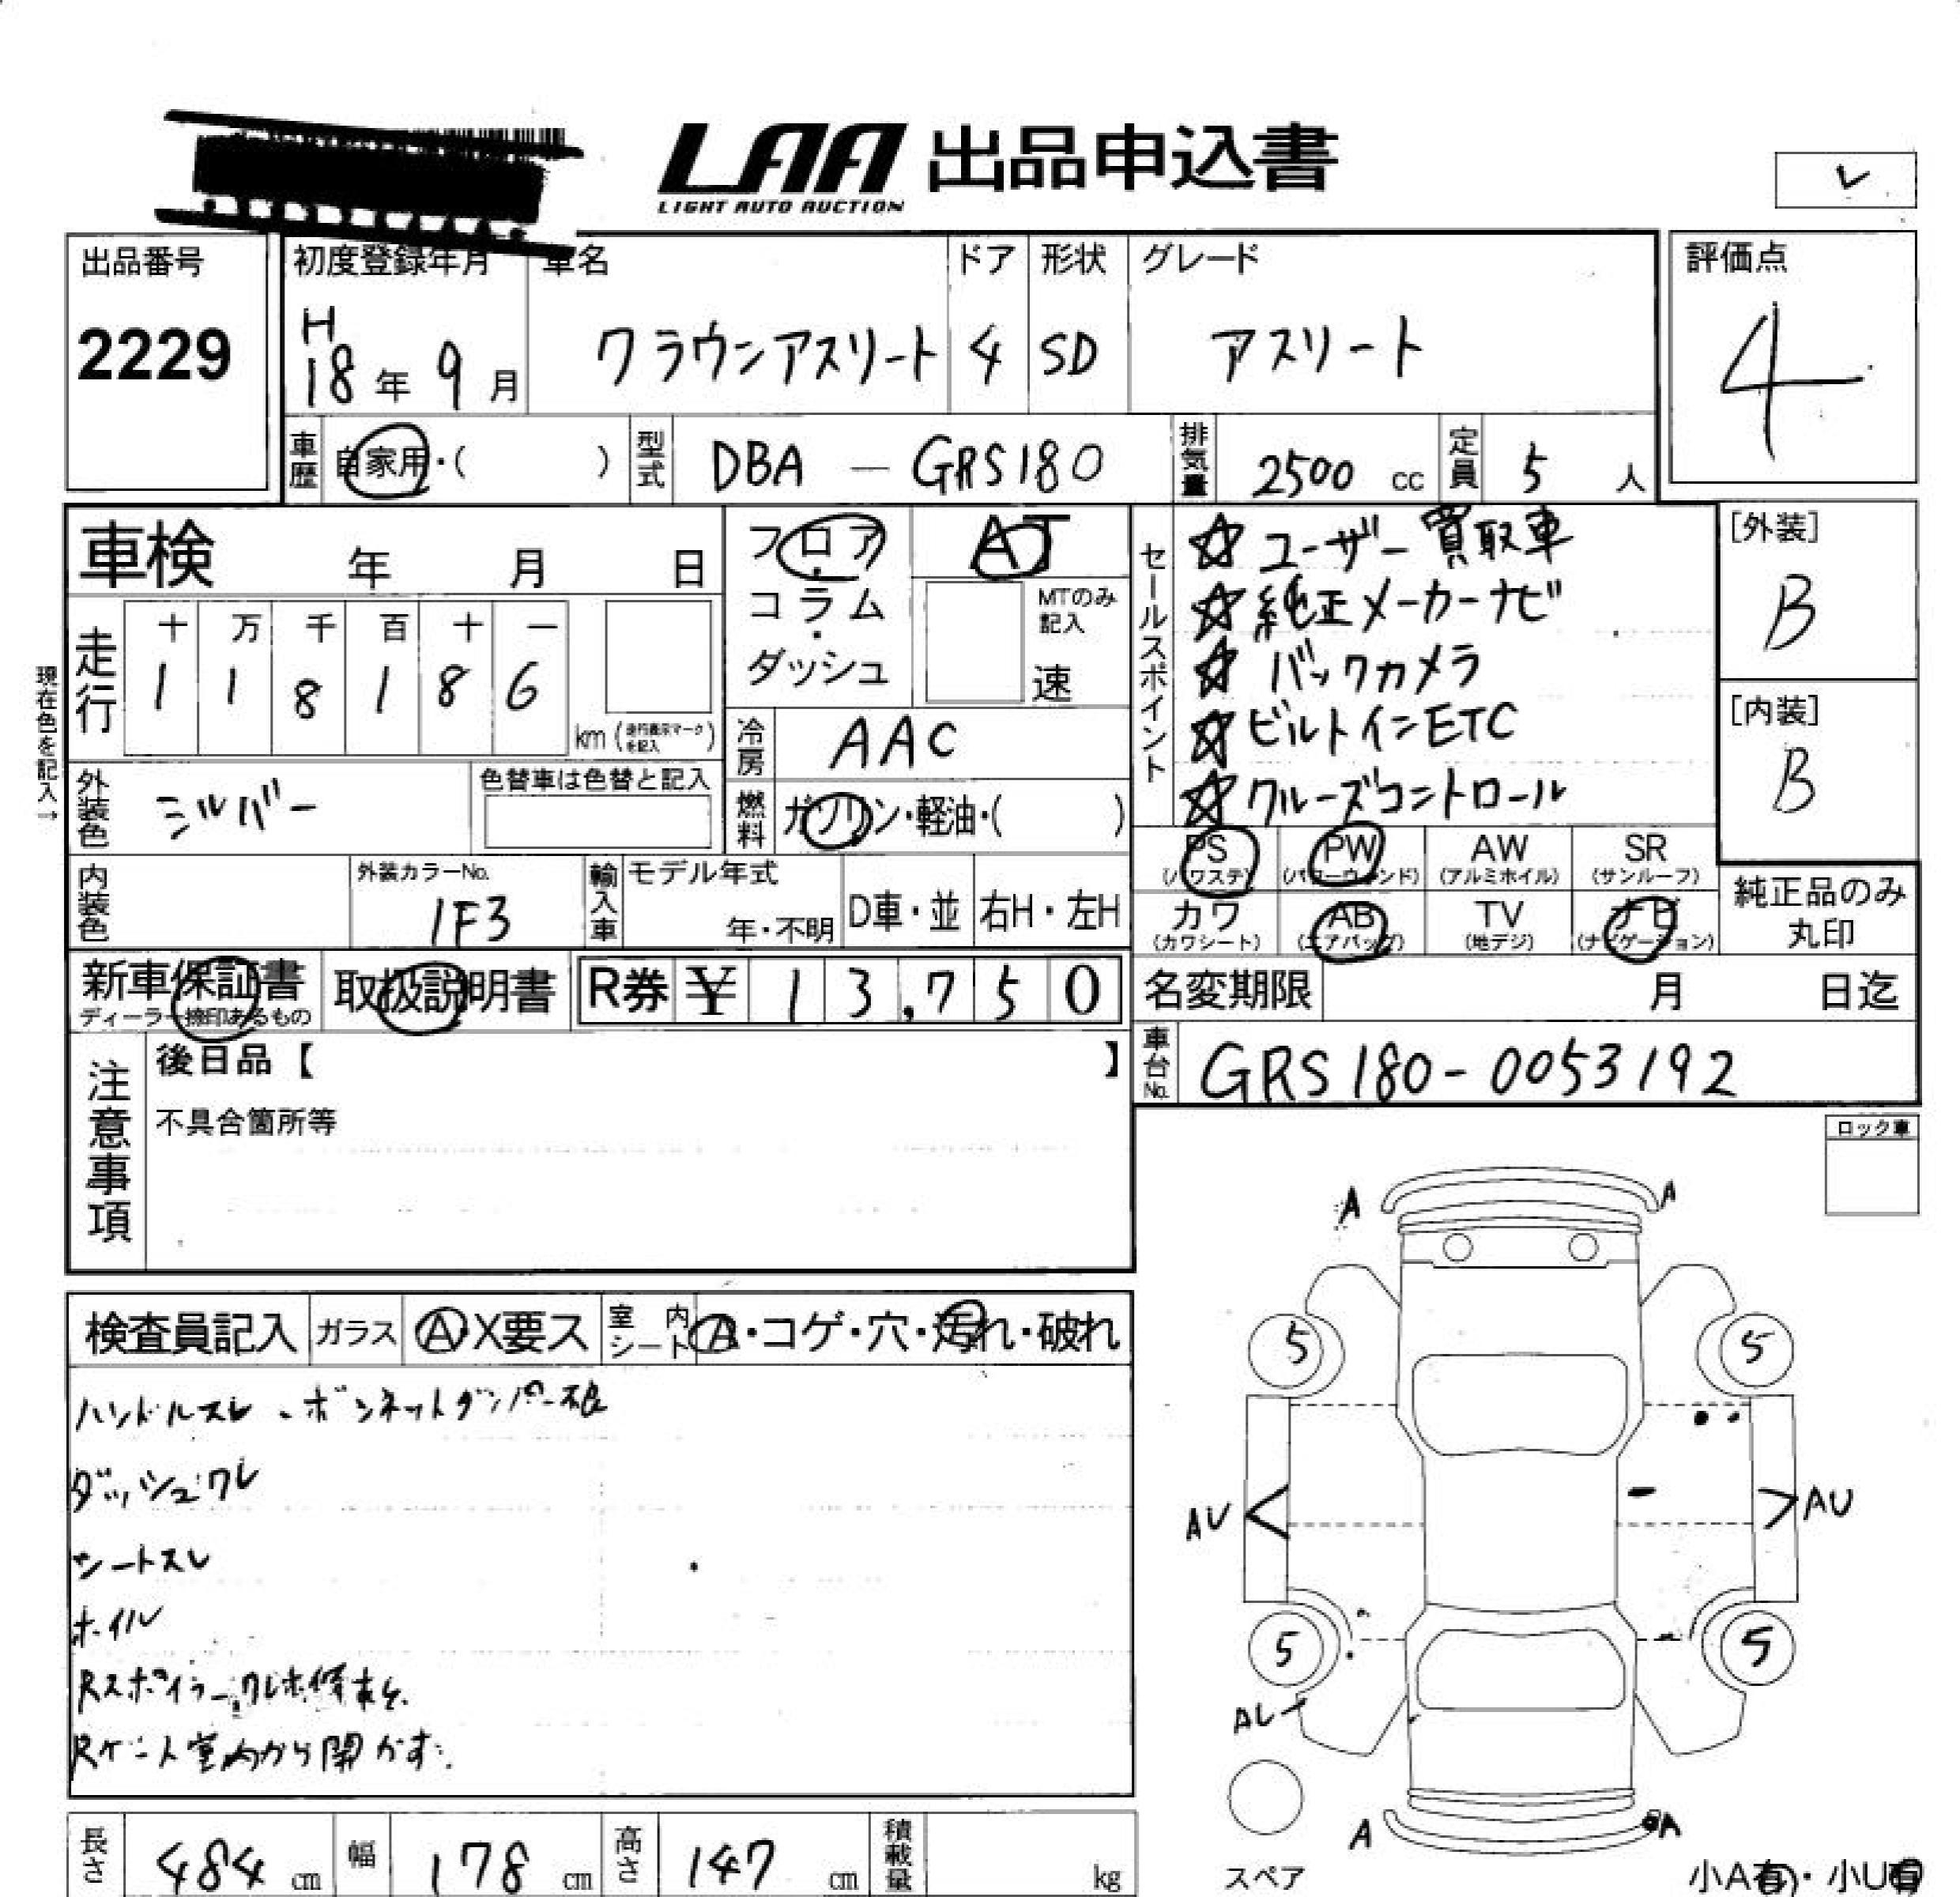 LAA 出品申込書
LIGHT AUTO AUCTION
レ
出品番号
2229
初度登録年月
H
18年 9月
車名
クラウンアスリート
ドア
4
形状
SD
グレード
アスリート
評価点
4
車歴 自家用・( )
型式 DBA － GRS180
排気量 2500 cc
定員 5 人
車検 年 月 日
フロア・コラム・ダッシュ
AT
MTのみ記入
速
セールスポイント
☆ ユーザー買取車
☆ 純正メーカーナビ
☆ バックカメラ
☆ ビルトインETC
☆ クルーズコントロール
[外装]
B
[内装]
B
現在色を記入→
走行
十 万 千 百 十 一
1 1 8 1 8 6
km (走行表示マークを記入)
冷房 AAC
外装色 シルバー
色替車は色替と記入
燃料 ガソリン・軽油・( )
PS (パワステ) PW (パワーウィンド) AW (アルミホイル) SR (サンルーフ)
カワ (カワシート) AB (エアバッグ) TV (地デジ) ナビ (ナビゲーション)
純正品のみ
丸印
内装色
外装カラーNo.
1F3
輸入車
モデル年式
年・不明
D車・並
右H・左H
新車保証書
ディーラー捺印あるもの
取扱説明書
R券 ¥ 13,750
名変期限 月 日迄
注意事項
後日品【 】
不具合箇所等
車台No. GRS180-0053192
ロック車
検査員記入 ガラス A・X要ス 室内シート A・コゲ・穴・汚れ・破れ
ハンドルスレ、ボンネットダンパー不良
ダッシュワレ
シートスレ
ホイル
Rスポイラーワレ補修あと
Rゲート室内から開かず
A A
5 5
AU AU
5 5
AU
A A
スペア
小A有・小U有
長さ 484 cm
幅 178 cm
高さ 147 cm
積載量 kg